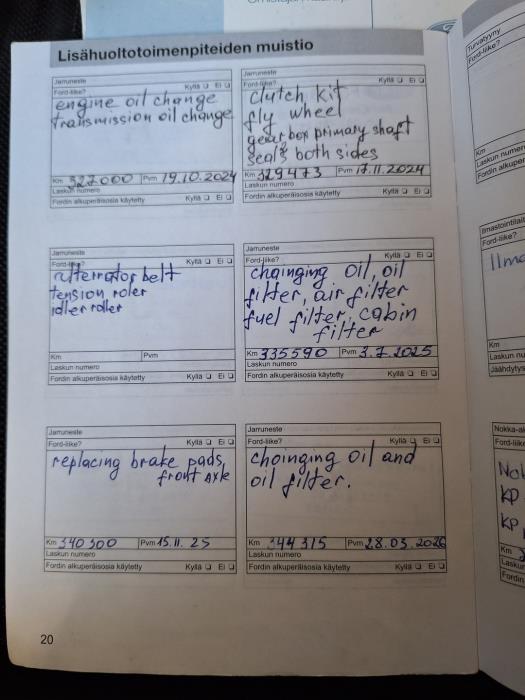 Lisähuoltotoimenpiteiden muistio
Jarruneste
Ford-liike? Kyllä Ei
engine oil change
transmission oil change
Km 327000 Pvm 19.10.2024
Laskun numero
Fordin alkuperäisosia käytetty Kyllä Ei
Jarruneste
Ford-liike? Kyllä Ei
clutch kit
fly wheel
gear box primary shaft
seals both sides
Km 329473 Pvm 17.11.2024
Laskun numero
Fordin alkuperäisosia käytetty Kyllä Ei
Jarruneste
Ford-liike? Kyllä Ei
alternator belt
tension roler
idler roller
Km Pvm
Laskun numero
Fordin alkuperäisosia käytetty Kyllä Ei
Jarruneste
Ford-liike? Kyllä Ei
chainging oil, oil
filter, air filter
fuel filter, cabin
filter
Km 335590 Pvm 3.7.2025
Laskun numero
Fordin alkuperäisosia käytetty Kyllä Ei
Jarruneste
Ford-liike? Kyllä Ei
replacing brake pads,
front Axle
Km 340300 Pvm 15.11.25
Laskun numero
Fordin alkuperäisosia käytetty Kyllä Ei
Jarruneste
Ford-liike? Kyllä Ei
chainging oil and
oil filter.
Km 344315 Pvm 28.03.2026
Laskun numero
Fordin alkuperäisosia käytetty Kyllä Ei
20
Turvatyyny
Ford-liike?
Km
Laskun numero
Ford-liike?
Km
KP
KP
Km